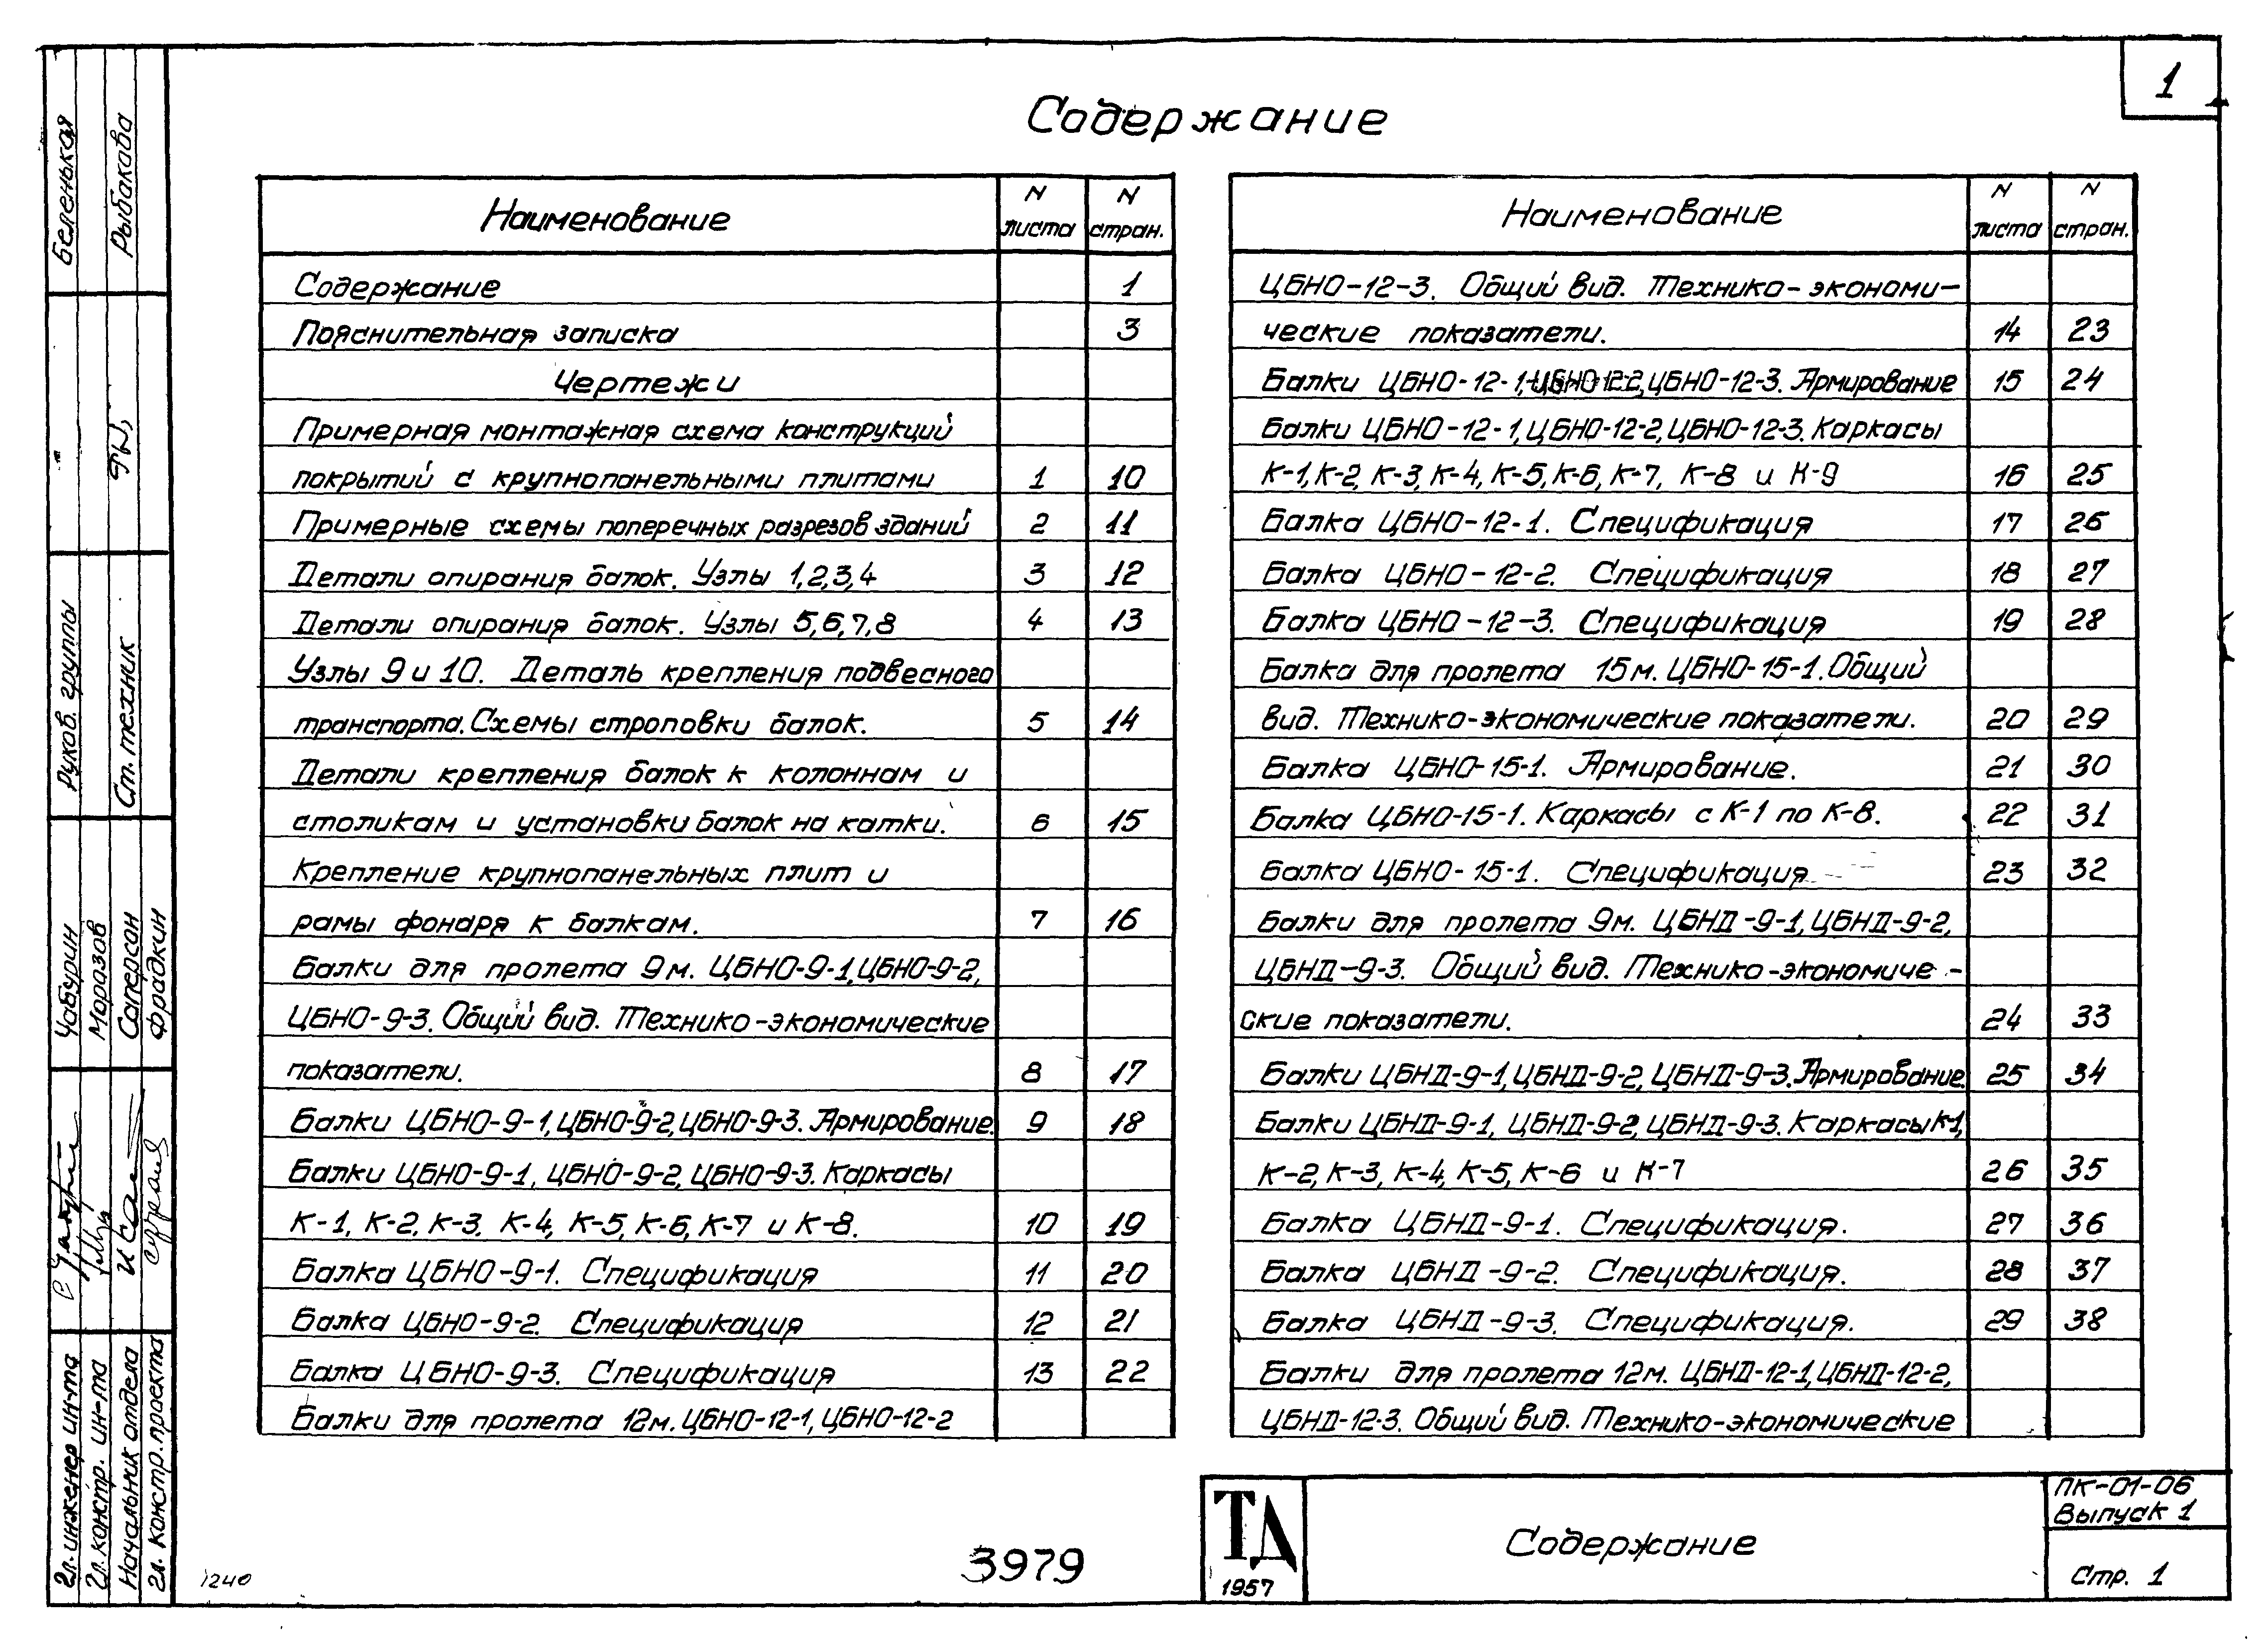 1
Содержание
Наименование N листа N стран.
Содержание 1
Пояснительная записка 3
Чертежи
Примерная монтажная схема конструкций
покрытий с крупнопанельными плитами 1 10
Примерные схемы поперечных разрезов зданий 2 11
Детали опирания балок. Узлы 1,2,3,4 3 12
Детали опирания балок. Узлы 5,6,7,8 4 13
Узлы 9 и 10. Деталь крепления подвесного
транспорта. Схемы строповки балок. 5 14
Детали крепления балок к колоннам и
столикам и установки балок на катки. 6 15
Крепление крупнопанельных плит и
рамы фонаря к балкам. 7 16
Балки для пролета 9м. ЦБНО-9-1, ЦБНО-9-2,
ЦБНО-9-3. Общий вид. Технико-экономические
показатели. 8 17
Балки ЦБНО-9-1, ЦБНО-9-2, ЦБНО-9-3. Армирование. 9 18
Балки ЦБНО-9-1, ЦБНО-9-2, ЦБНО-9-3. Каркасы
К-1, К-2, К-3, К-4, К-5, К-6, К-7 и К-8. 10 19
Балка ЦБНО-9-1. Спецификация 11 20
Балка ЦБНО-9-2. Спецификация 12 21
Балка ЦБНО-9-3. Спецификация 13 22
Балки для пролета 12м. ЦБНО-12-1, ЦБНО-12-2
Наименование N листа N стран.
ЦБНО-12-3. Общий вид. Технико-экономи-
ческие показатели. 14 23
Балки ЦБНО-12-1, ЦБНО-12-2, ЦБНО-12-3. Армирование 15 24
Балки ЦБНО-12-1, ЦБНО-12-2, ЦБНО-12-3. Каркасы
К-1, К-2, К-3, К-4, К-5, К-6, К-7, К-8 и К-9 16 25
Балка ЦБНО-12-1. Спецификация 17 26
Балка ЦБНО-12-2. Спецификация 18 27
Балка ЦБНО-12-3. Спецификация 19 28
Балка для пролета 15м. ЦБНО-15-1. Общий
вид. Технико-экономические показатели. 20 29
Балка ЦБНО-15-1. Армирование. 21 30
Балка ЦБНО-15-1. Каркасы с К-1 по К-8. 22 31
Балка ЦБНО-15-1. Спецификация 23 32
Балки для пролета 9м. ЦБНД-9-1, ЦБНД-9-2,
ЦБНД-9-3. Общий вид. Технико-экономиче-
ские показатели. 24 33
Балки ЦБНД-9-1, ЦБНД-9-2, ЦБНД-9-3. Армирование. 25 34
Балки ЦБНД-9-1, ЦБНД-9-2, ЦБНД-9-3. Каркасы К-1,
К-2, К-3, К-4, К-5, К-6 и К-7 26 35
Балка ЦБНД-9-1. Спецификация. 27 36
Балка ЦБНД-9-2. Спецификация. 28 37
Балка ЦБНД-9-3. Спецификация. 29 38
Балки для пролета 12м. ЦБНД-12-1, ЦБНД-12-2,
ЦБНД-12-3. Общий вид. Технико-экономические
Гл. инженер ин-та Чабурин Руков. группы Беленькая
Гл. констр. ин-та Морозов
Начальник отдела Саперсон Ст. техник Рыбакова
Гл. констр. проекта Фрадкин
1240
3979
ТД
1957
Содержание
ПК-01-06
Выпуск 1
Стр. 1